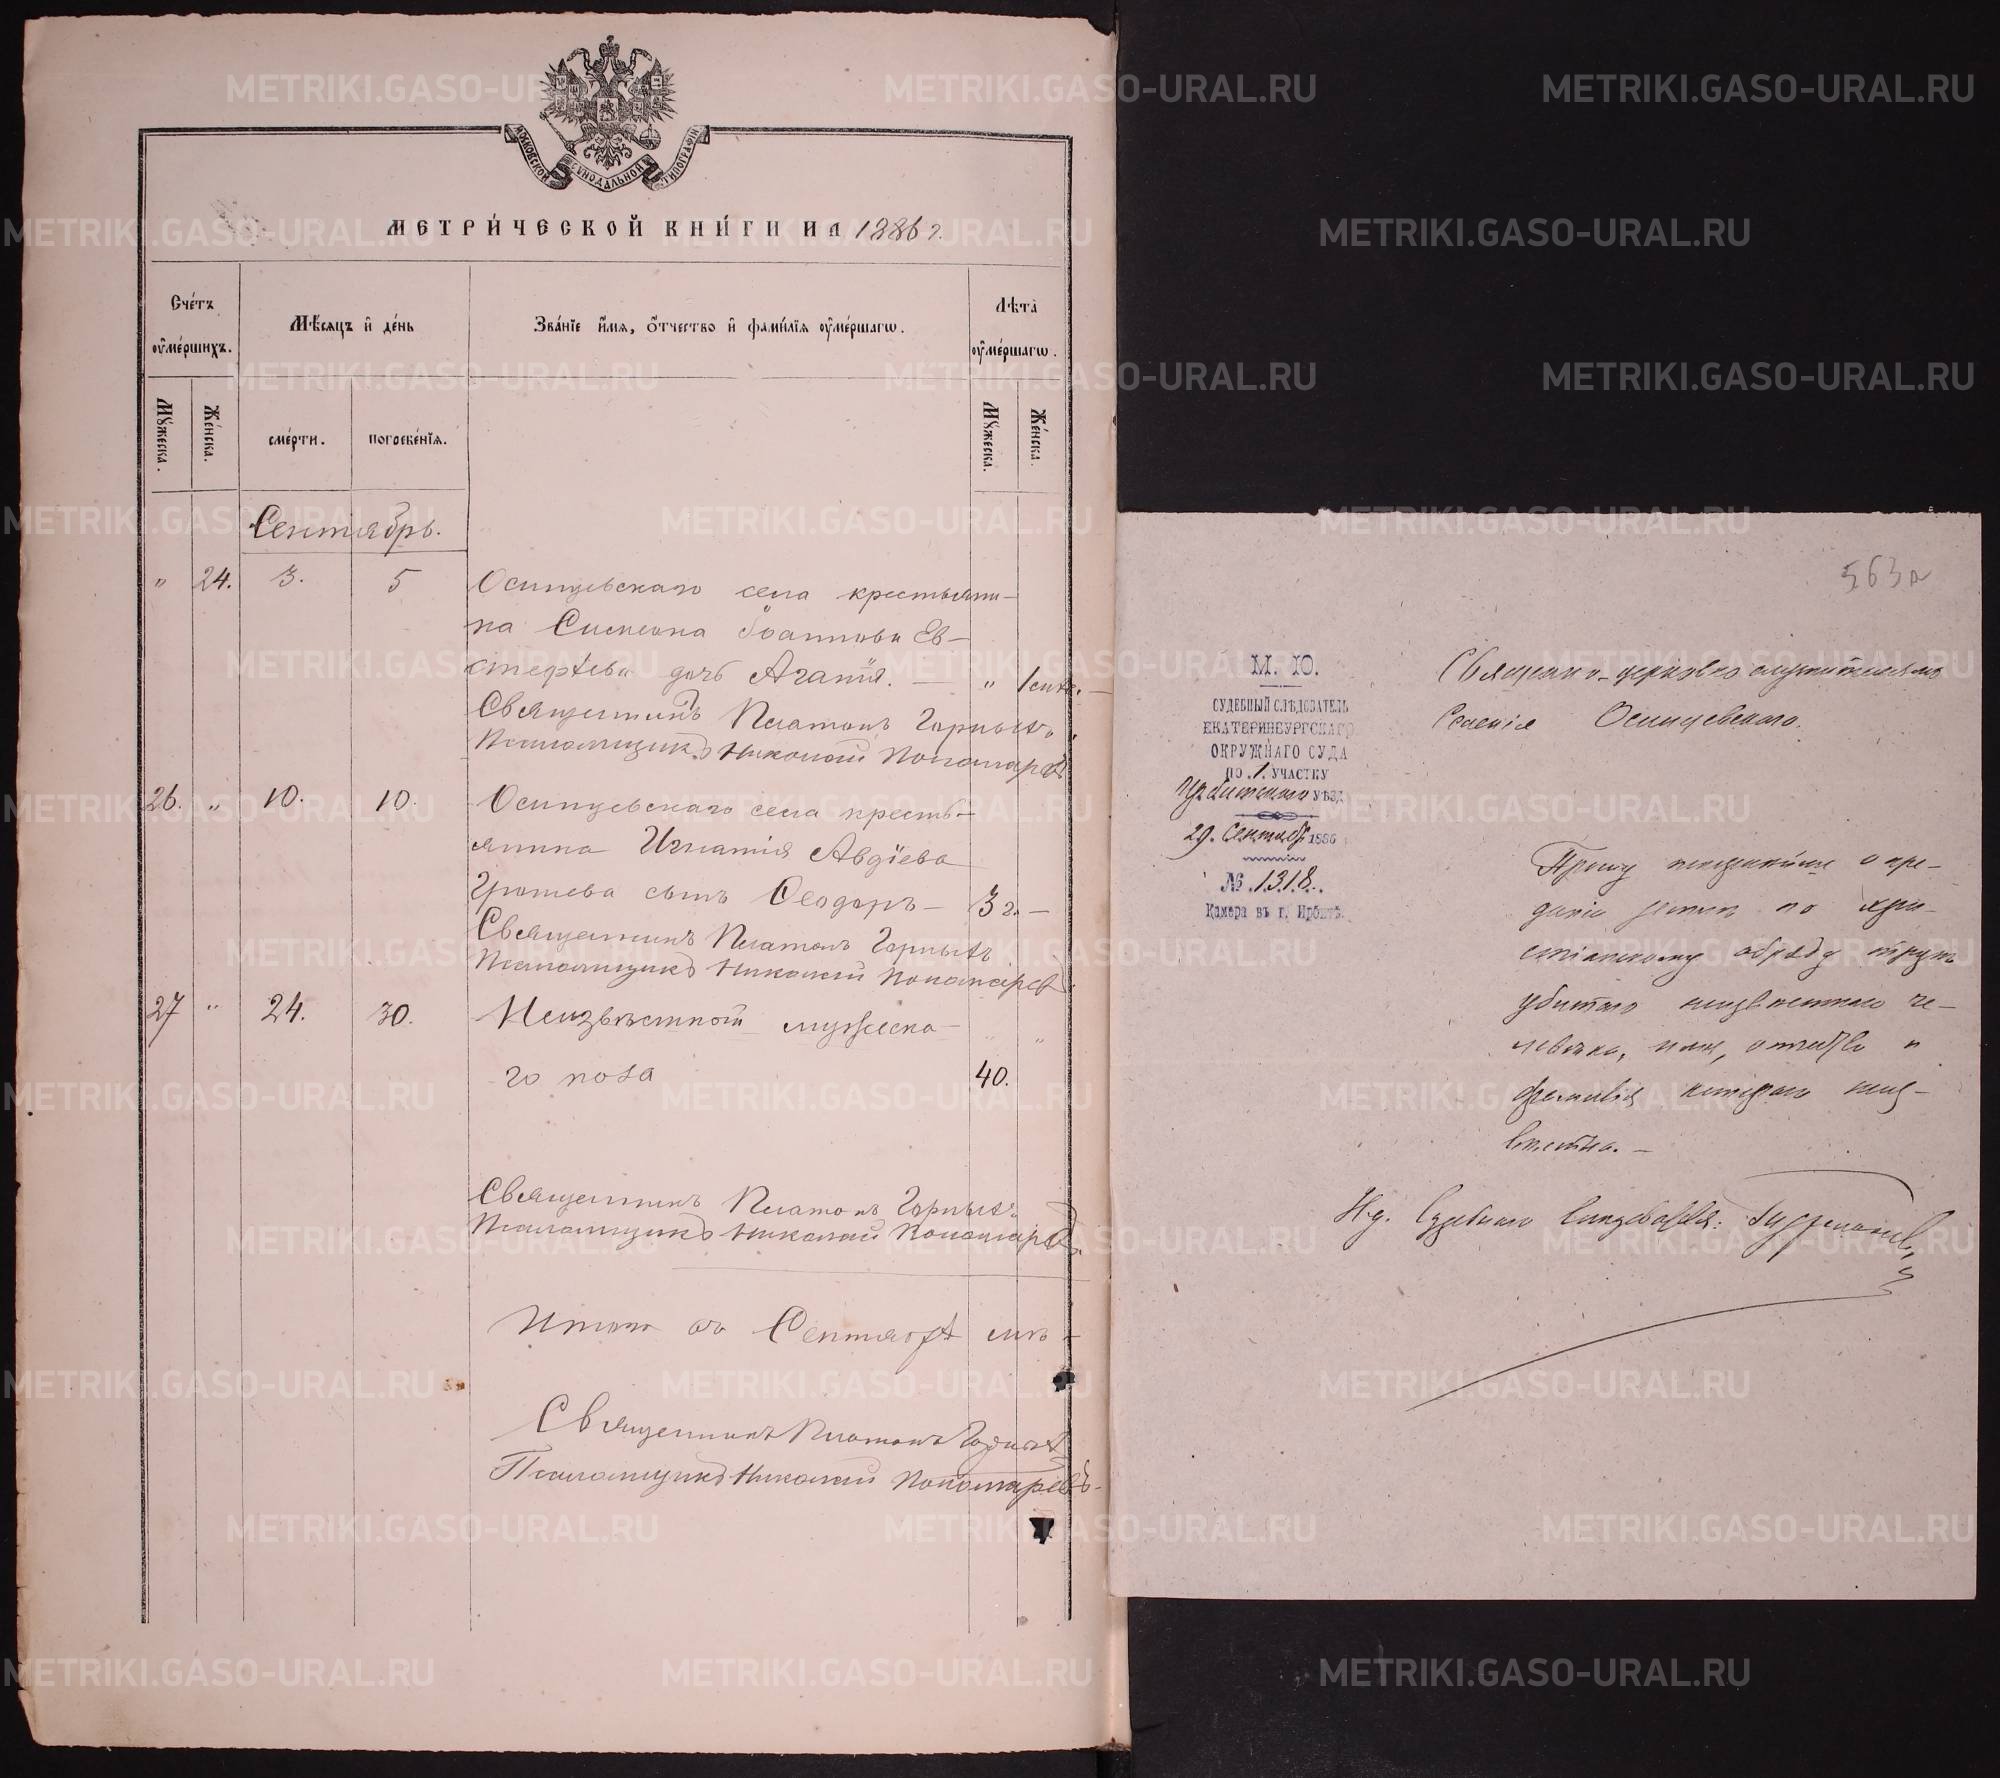 МОСКОВСКОЙ СУНОДАЛЬНОЙ ТИПОГРАФІИ
МЕТРИ́ЧЕСКОЙ КНИ́ГИ НА 1886 г.
Сче́тъ ѹ҆ме́ршихъ.
Мѣ́сяцъ и҆ де́нь
Зва́нїе и҆́мѧ, ѻ҆́тчество и҆ фами́лїѧ ѹ҆ме́ршагѡ.
Лѣта̀ ѹ҆ме́ршагѡ.
Мꙋ́жеска.
Же́нска.
сме́рти.
погребе́нїѧ.
Мꙋ́жеска.
Же́нска.
Сентябрь.
" 24. 3. 5 Осинцевскаго села крестьяни-
на Симеона Іоаннова Ев-
стефѣева дочь Агапія. — " 1
Священникъ Платонъ Горныхъ.
Псаломщикъ Николай Пономаревъ
26. " 10. 10. Осинцевскаго села кресть-
янина Игнатія Авдіева
сынъ Ѳеодоръ — 3 г. —
Священникъ Платонъ Горныхъ
Псаломщикъ Николай Пономаревъ
27 " 24. 30. Неизвѣстной мужеска-
го пола 40.
Священникъ Платонъ Горныхъ
Псаломщикъ Николай Пономаревъ
Итого въ Сентябрѣ
Священникъ Платонъ Горныхъ
Псаломщикъ Николай Пономаревъ.
563а
М. Ю.
СУДЕБНЫЙ СЛѢДОВАТЕЛЬ
ЕКАТЕРИНБУРГСКАГО
ОКРУЖНАГО СУДА
ПО 1. УЧАСТКУ
Ирбитскаго УѢЗД.
29. Сентября 1886
№ 1318.
Камера въ г. Ирбитѣ.
Священно-церковно служителямъ
Селенія Осинцевскаго.
Прошу покорнѣйше о пре-
даніи землѣ по хри-
стіанскому обряду трупъ
убитаго неизвѣстнаго че-
ловѣка, имя, отчество и
фамилія котораго неиз-
вѣстна. —
И. д. Судебнаго Слѣдователя:
METRIKI.GASO-URAL.RU